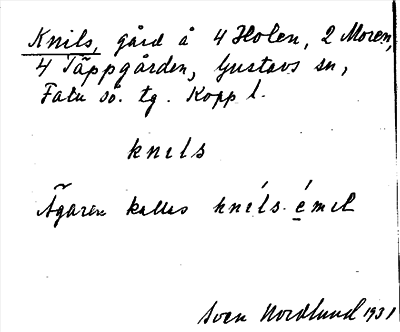 Knils, gård å 4 Holen, 2 Moren,
4 Täppgården, Gustavs sn,
Falu sö. tg. Kopp l.
knils
Ägaren kallas knils-émil
Sven Nordlund 1931